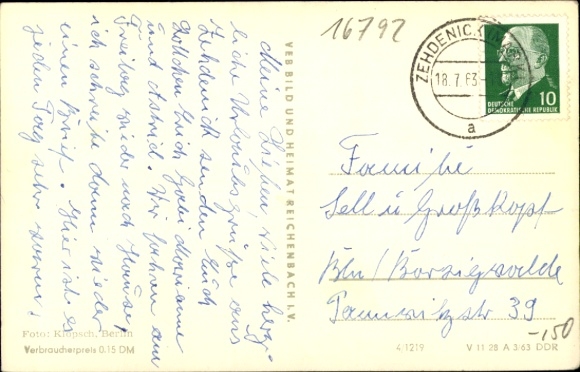 16792
Meine Lieben! Viele herz-
liche Urlaubsgrüße aus
Zehdenick senden Euch
Lottchen Erich Marianne
und Astrid. Wir fahren am
Freitag wieder nach Hause,
ich schreibe dann wieder
einen Brief. Hier ist es
jeden Tag sehr warm.
VEB BILD UND HEIMAT REICHENBACH I. V.
ZEHDENICK
18.7.63
a
DEUTSCHE
DEMOKRATISCHE REPUBLIK
10
Familie
Sell u Großkopf
Bln/Borsigwalde
Tarnowitzstr 39
-150
Foto: Klopsch, Berlin
Verbraucherpreis 0.15 DM
4/1219
V 11 28 A 3/63 DDR